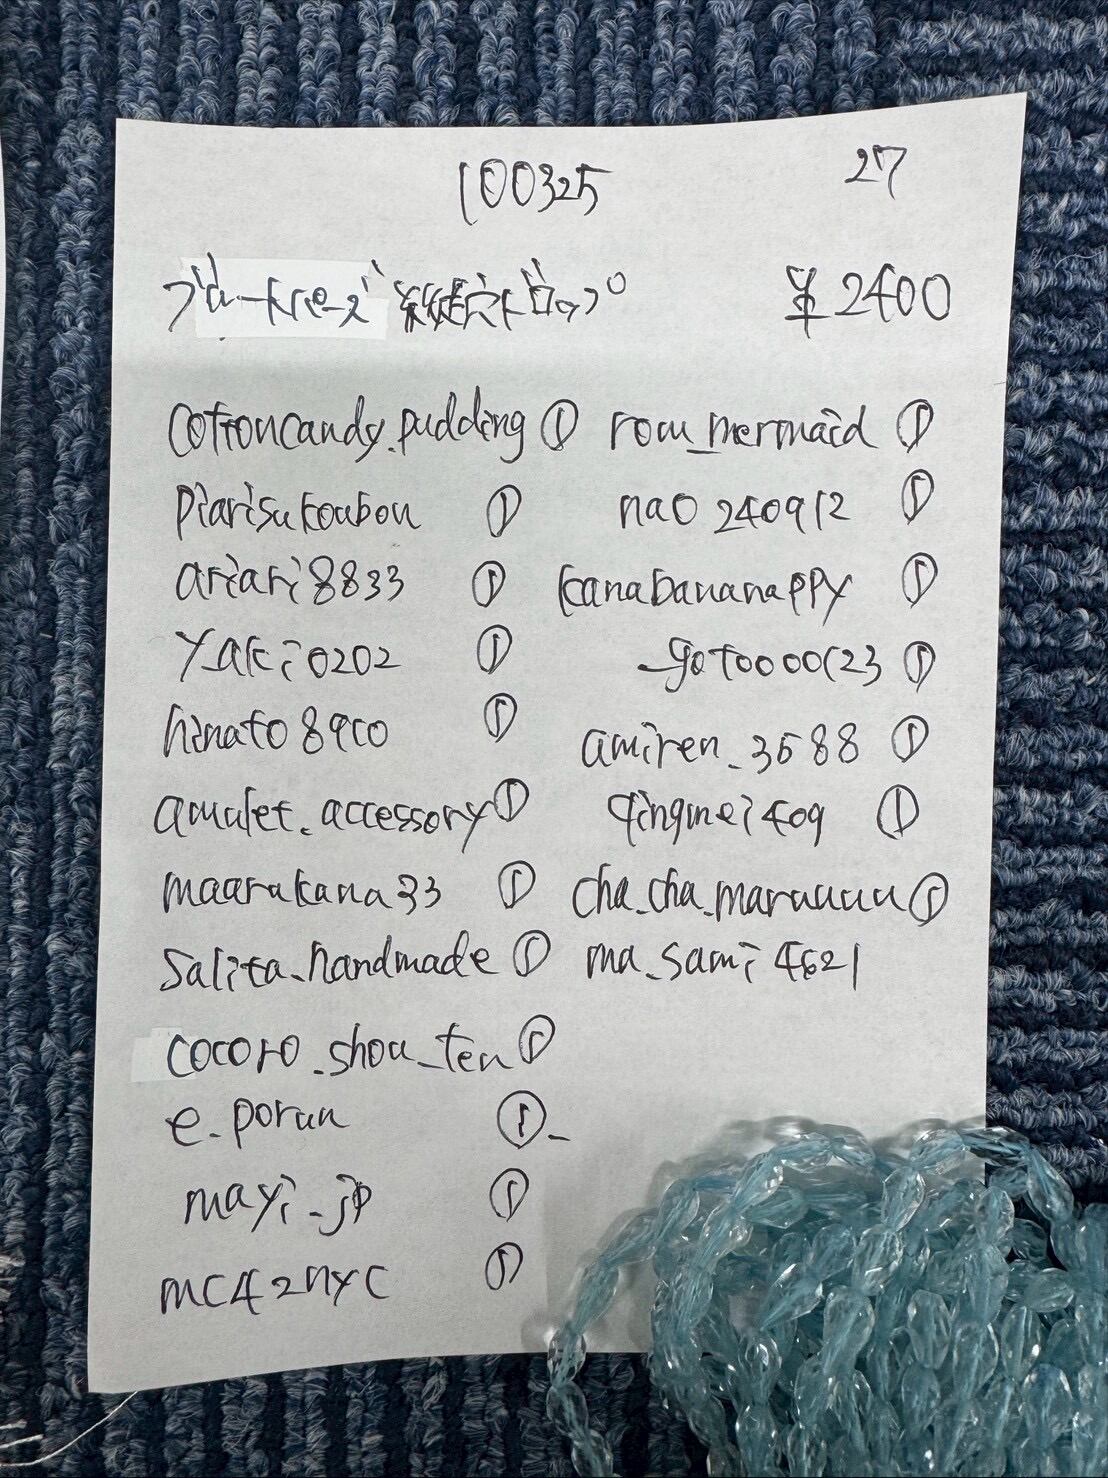 100325 27
ブルートパーズ 縦穴ドロップ ¥2400
cottoncandy.pudding ① rou_mermaid ①
piarisukoubou ① nao240912 ①
ariari8833 ① kanabananappy ①
y_aki0202 ① _goto000123 ①
hinato8910 ① amiren_3588 ①
amulet._accessory ① qingmei409 ①
maarukana33 ① cha_cha_maruuuu ①
salita_handmade ① ma_sami4621
cocoro_shou_ten ①
e_porun ①
mayi_jp ①
mc42nyc ①